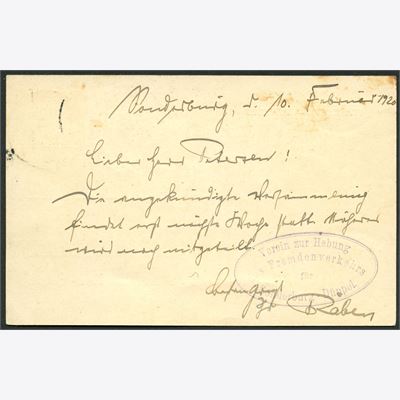 Sonderburg, d. 10. Februar 1920
Lieber Herr Petersen!
Die angekündigte Versammlung
findet erst nächste Woche statt. Näheres
wird noch mitgeteilt.
Verein zur Hebung
Fremdenverkehrs
für
Düppel
Ihr Raben